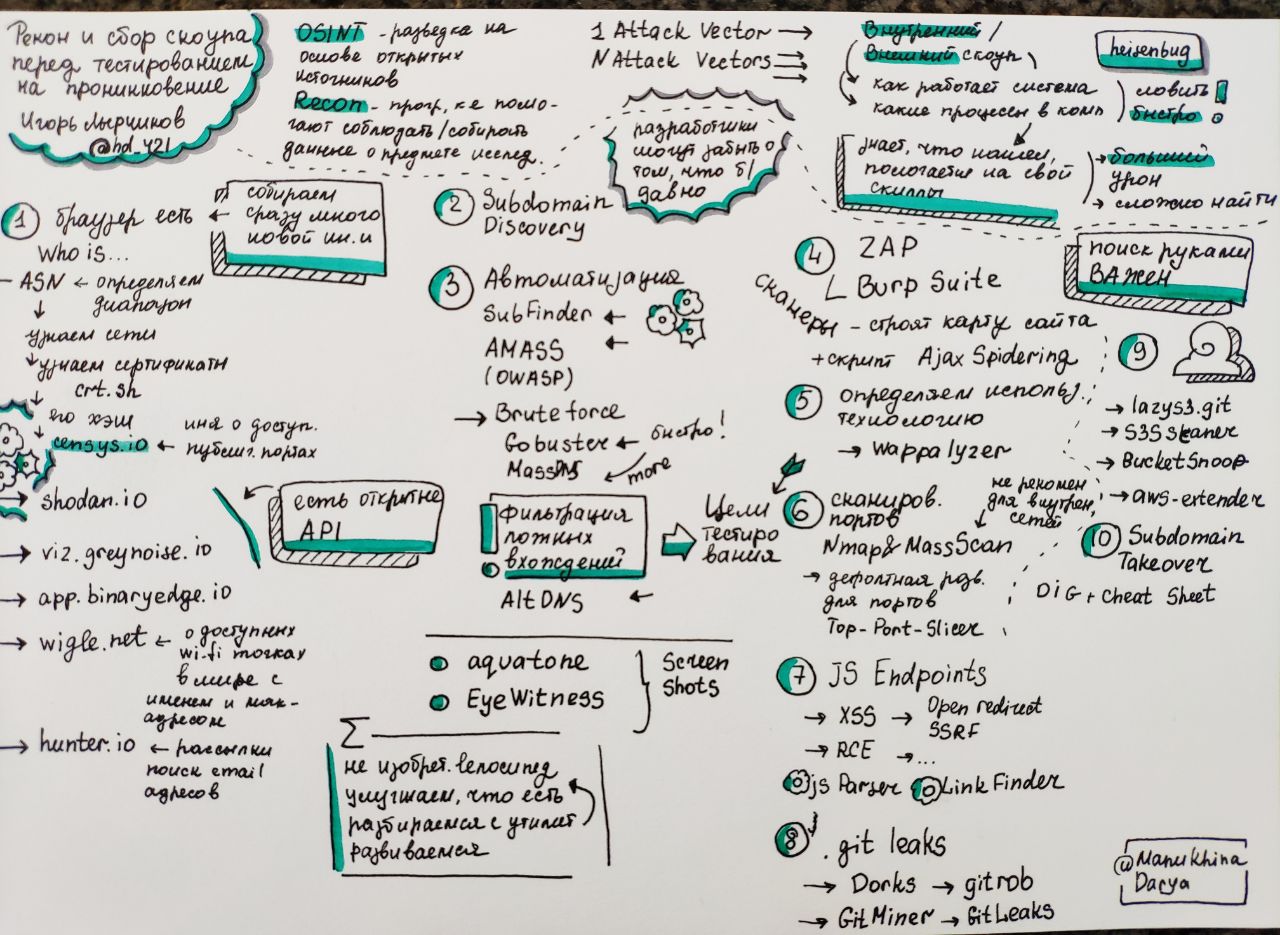 Рекон и сбор скоупа
перед тестированием
на проникновение
Игорь
@hd_421
OSINT - разведка на
основе открытых
источников
Recon - прогр, к-е помо-
гают соблюдать/собирать
данные о предмете исслед.
1 Attack Vector →
N Attack Vectors →
разработчики
могут забыть о
том, что б/
давно
Внутренний /
Внешний скоуп
как работает система
какие процессы в комп
ловить
быстро
heisenbug
знает, что нашел,
полагается на свой
скиллы
→ больший
урон
→ сложно найти
1 браузер есть ←
собираем
сразу много
новой ин.и
Who is...
- ASN ← определяем
диапазон
узнаем сети
узнаем сертификаты
crt.sh
его хэш
censys.io ← инфа о доступ.
публич. портах
→ shodan.io
есть открытые
API
→ viz.greynoise.io
→ app.binaryedge.io
→ wigle.net ← о доступных
wi-fi точках
в мире с
именем и мак-
адресом
→ hunter.io ← рассылки
поиск email
адресов
2 Subdomain
Discovery
3 Автоматизация
SubFinder ←
AMASS ←
(OWASP)
→ Brute force
Gobuster ← быстро!
MassDNS ← more
фильтрация
ложных
вхождений
AltDNS ←
Цели
тестиро
вания
aquatone
EyeWitness
Screen
Shots
Σ
не изобрет. велосипед
улучшаем, что есть
разбираемся с утилит
развиваемся
4 ZAP
Burp Suite
сканеры - строят карту сайта
+ скрипт Ajax Spidering
поиск руками
ВАЖЕН
5 определяем использ.
технологию
→ Wappalyzer
6 сканиров.
портов
не рекомен
для внутрен.
сетей
Nmap & MassScan
→ дефолтная разв.
для портов
Top-Port-Slicer
7 JS Endpoints
→ XSS → Open redirect
SSRF
→ RCE →...
js Parser LinkFinder
8 .git leaks
→ Dorks → gitrob
→ GitMiner → GitLeaks
9
→ lazys3.git
→ S3Scaner
→ BucketSnoop
→ aws-extender
10 Subdomain
Takeover
DiG + Cheat Sheet
@Manukhina
Darya